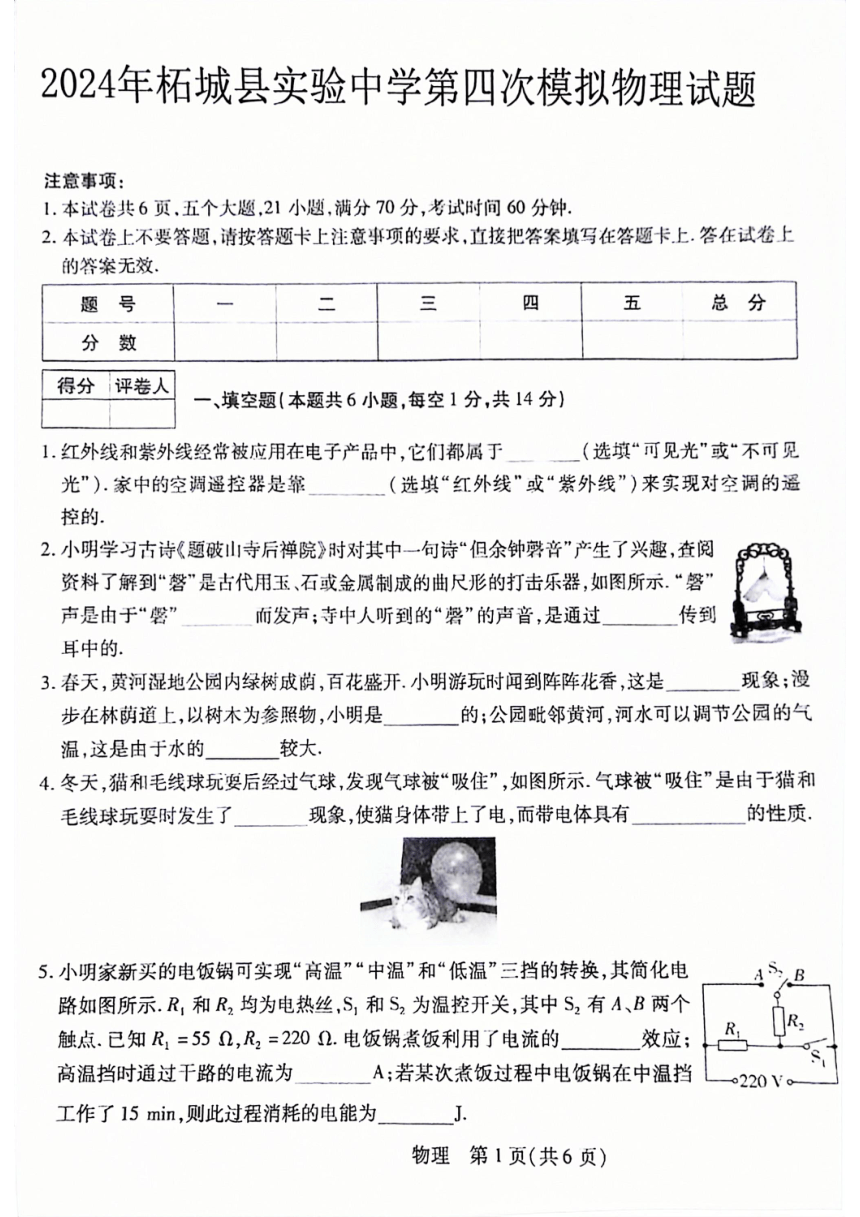 2024年柘城县实验中学第四次模拟物理试题
注意事项：
1. 本试卷共6页,五个大题,21小题,满分70分,考试时间60分钟.
2. 本试卷上不要答题,请按答题卡上注意事项的要求,直接把答案填写在答题卡上.答在试卷上
的答案无效.
题 号 一 二 三 四 五 总 分
分 数
得分 评卷人
一、填空题(本题共6小题,每空1分,共14分)
1. 红外线和紫外线经常被应用在电子产品中,它们都属于______(选填“可见光”或“不可见
光”).家中的空调遥控器是靠______(选填“红外线”或“紫外线”)来实现对空调的遥
控的.
2. 小明学习古诗《题破山寺后禅院》时对其中一句诗“但余钟磬音”产生了兴趣,查阅
资料了解到“磬”是古代用玉、石或金属制成的曲尺形的打击乐器,如图所示.“磬”
声是由于“磬”______而发声;寺中人听到的“磬”的声音,是通过______传到
耳中的.
3. 春天,黄河湿地公园内绿树成荫,百花盛开.小明游玩时闻到阵阵花香,这是______现象;漫
步在林荫道上,以树木为参照物,小明是______的;公园毗邻黄河,河水可以调节公园的气
温,这是由于水的______较大.
4. 冬天,猫和毛线球玩耍后经过气球,发现气球被“吸住”,如图所示.气球被“吸住”是由于猫和
毛线球玩耍时发生了______现象,使猫身体带上了电,而带电体具有______的性质.
5. 小明家新买的电饭锅可实现“高温”“中温”和“低温”三挡的转换,其简化电
路如图所示.R₁和R₂均为电热丝,S₁和S₂为温控开关,其中S₂有A、B两个
触点.已知R₁=55 Ω,R₂=220 Ω.电饭锅煮饭利用了电流的______效应;
高温挡时通过干路的电流为______A;若某次煮饭过程中电饭锅在中温挡
工作了15 min,则此过程消耗的电能为______J.
A S₂ B
R₁ R₂
S₁
220 V
物理 第1页(共6页)